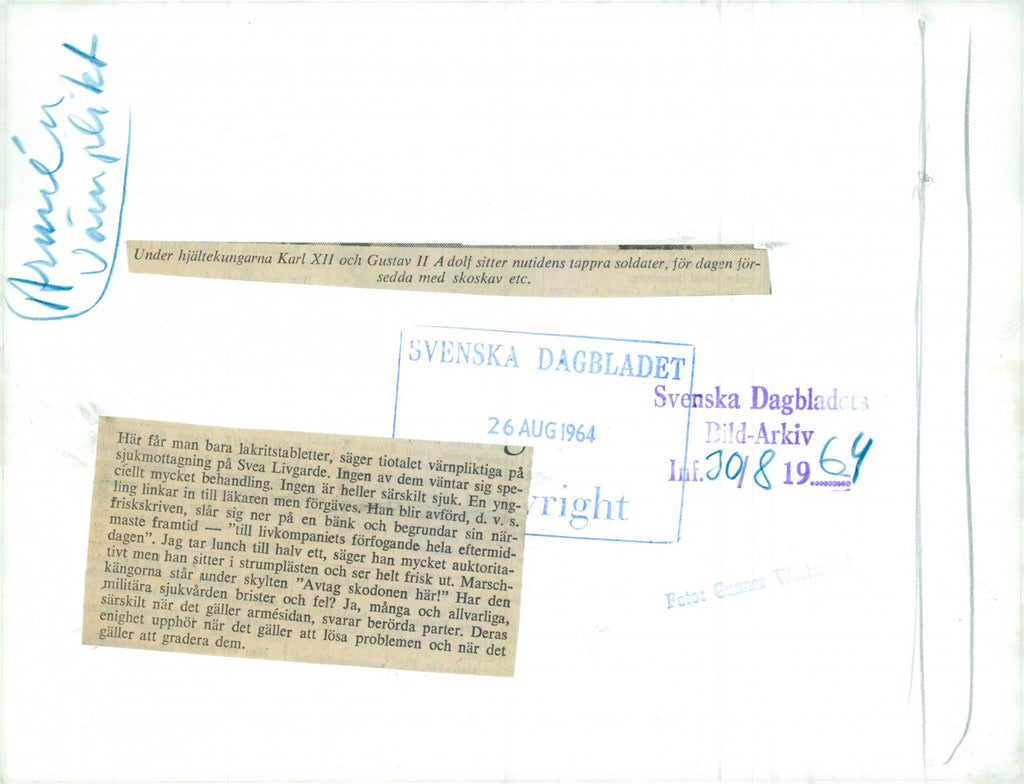 Armén
Värnplikt
Under hjältekungarna Karl XII och Gustav II Adolf sitter nutidens tappra soldater, för dagen för-
sedda med skoskav etc.
SVENSKA DAGBLADET
26 AUG 1964
yright
Svenska Dagbladets
Bild-Arkiv
Inf. 30/8 1964
Foto: Gunnar
Här får man bara lakritstabletter, säger tiotalet värnpliktiga på
sjukmottagning på Svea Livgarde. Ingen av dem väntar sig spe-
ciellt mycket behandling. Ingen är heller särskilt sjuk. En yng-
ling linkar in till läkaren men förgäves. Han blir avförd, d. v. s.
friskskriven, slår sig ner på en bänk och begrundar sin när-
maste framtid — "till livkompaniets förfogande hela eftermid-
dagen". Jag tar lunch till halv ett, säger han mycket auktorita-
tivt men han sitter i strumplästen och ser helt frisk ut. Marsch-
kängorna står under skylten "Avtag skodonen här!" Har den
militära sjukvården brister och fel? Ja, många och allvarliga,
särskilt när det gäller armésidan, svarar berörda parter. Deras
enighet upphör när det gäller att lösa problemen och när det
gäller att gradera dem.